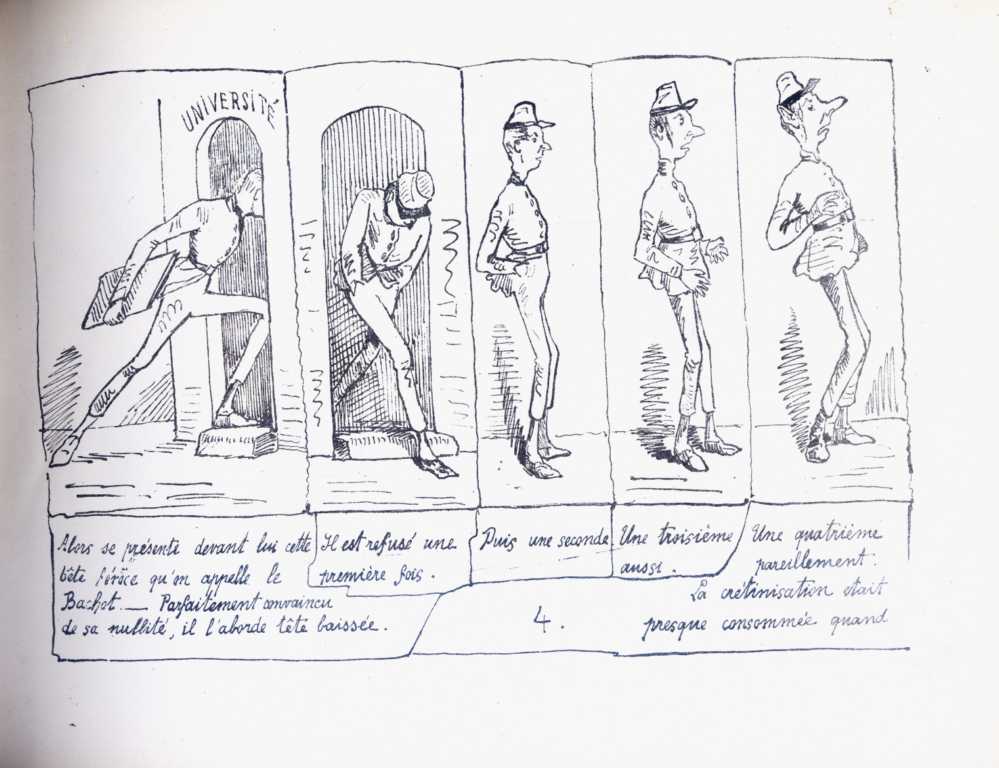 UNIVERSITÉ
Alors se présente devant lui cette
bête féroce qu'on appelle le
Bachot. — Parfaitement convaincu
de sa nullité, il l'aborde tête baissée.
Il est refusé une
première fois.
Puis une seconde
Une troisième
aussi.
Une quatrième
pareillement.
La crétinisation était
presque consommée quand
4.